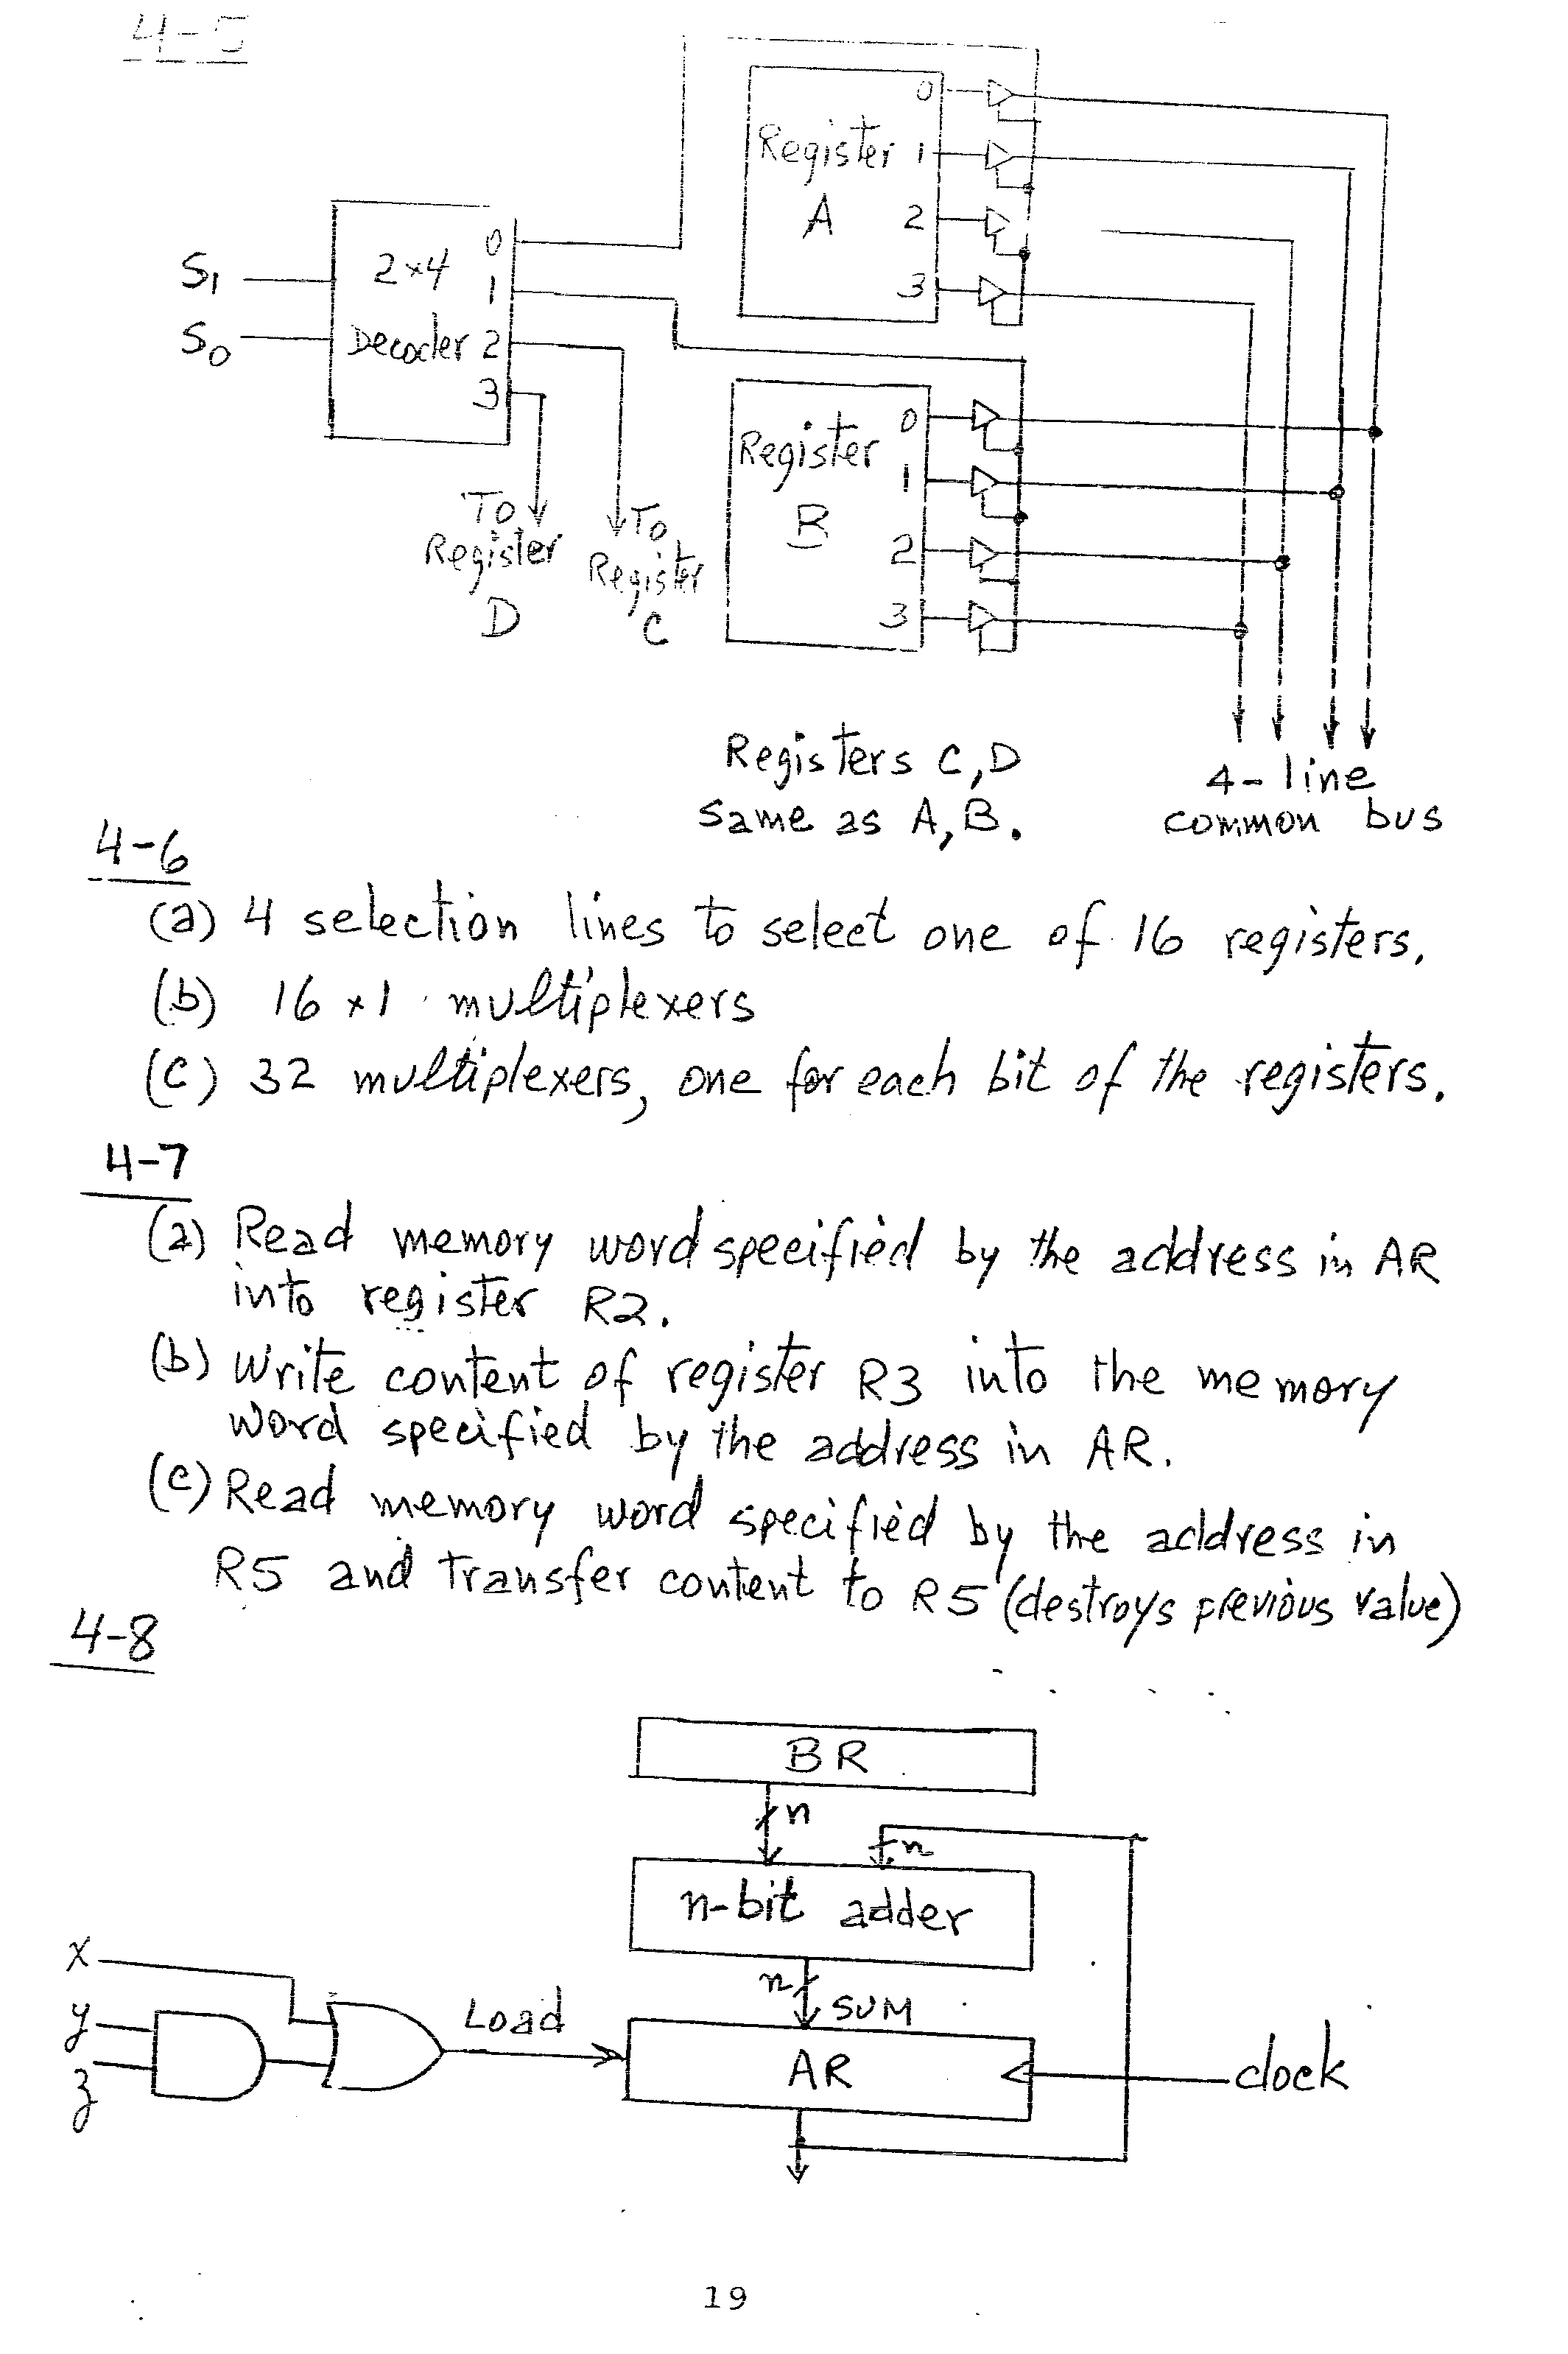 4-5
0
Register 1
A 2
3
S1
S0
2x4
Decoder
0
1
2
3
To
Register
D
To
Register
C
Register
B
0
1
2
3
Registers C,D
same as A,B.
4-line
common bus
4-6
(a) 4 selection lines to select one of 16 registers.
(b) 16 x 1 multiplexers
(c) 32 multiplexers, one for each bit of the registers.
4-7
(a) Read memory word specified by the address in AR
into register R2.
(b) Write content of register R3 into the memory
word specified by the address in AR.
(c) Read memory word specified by the address in
R5 and transfer content to R5 (destroys previous value)
4-8
BR
n
n
n-bit adder
n
SUM
x
y
z
Load
AR
clock
19